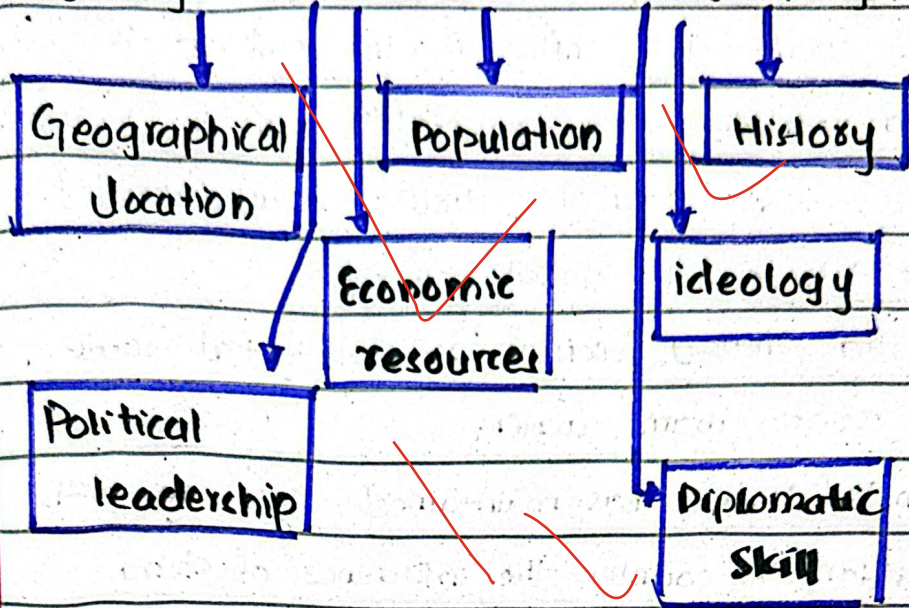 Geographical
location
Population
History
Economic
resources
ideology
Political
leadership
Diplomatic
Skill